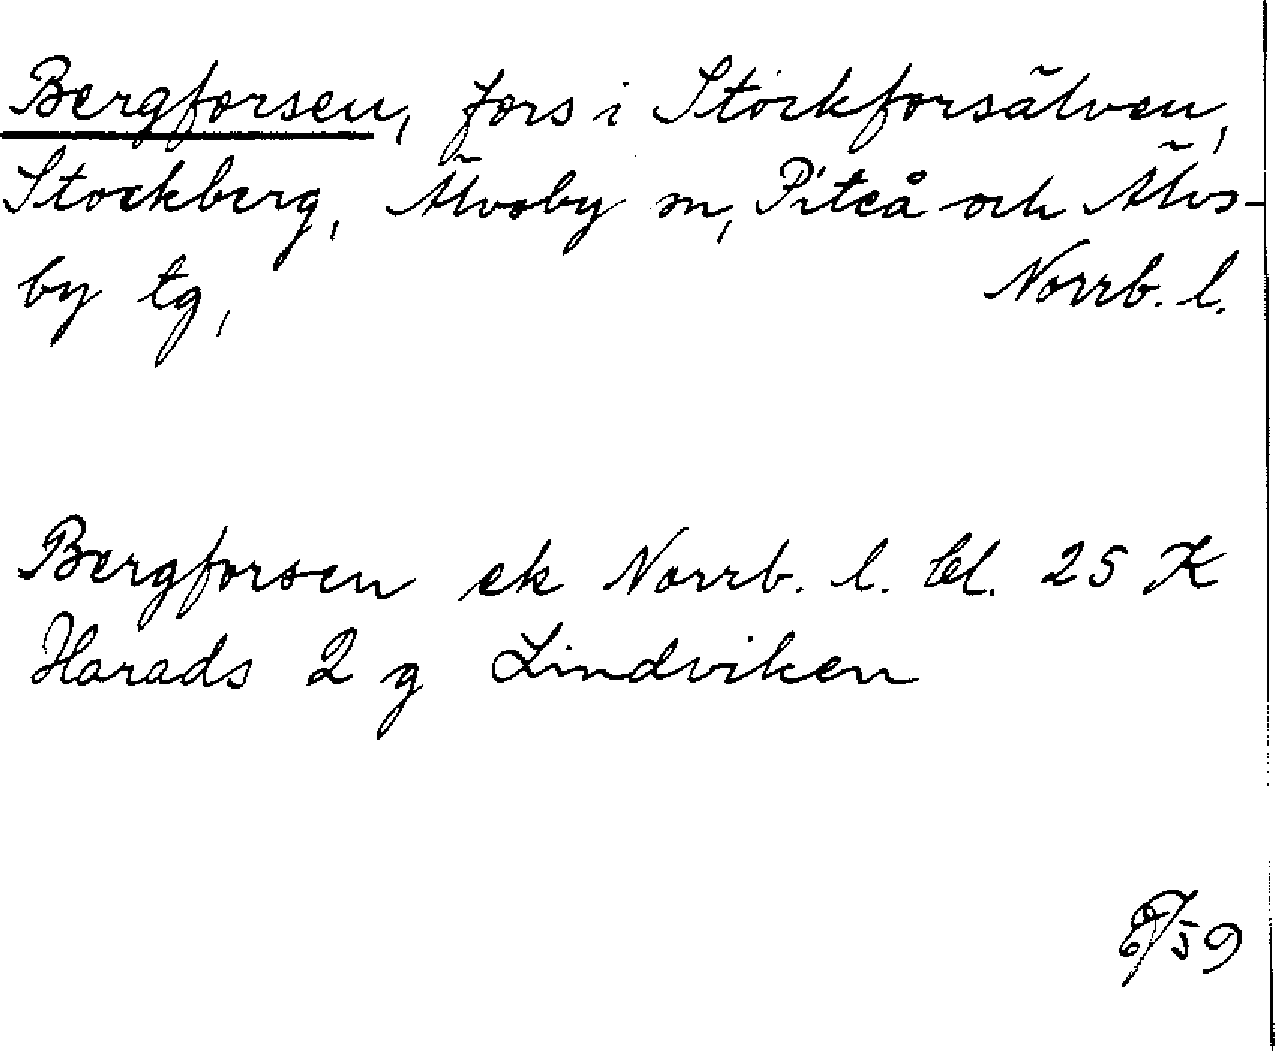 Bergforsen, fors i Stockforsälven,
Stockberg, Älvsby sn, Piteå och Älvs-
by tg, Norrb. l.
Bergforsen ek Norrb. l. bl. 25 K
Harads 2 g Lindviken
/59